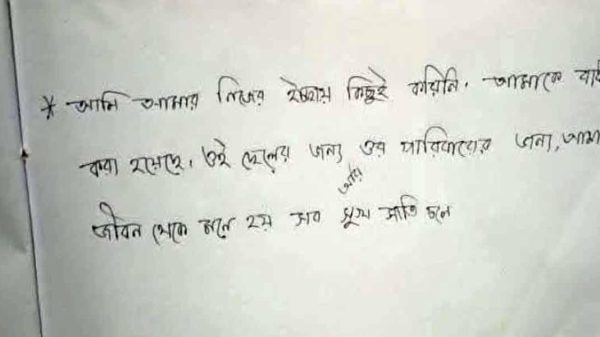 * আমি আমার নিজের ইচ্ছায় কিছুই করিনি, আমাকে
করা হয়েছে, ওই ছেলের জন্য ওর পারিবারের জন্য, আমা
আর
জীবন থেকে মনে হয় সব সুখ শান্তি চলে